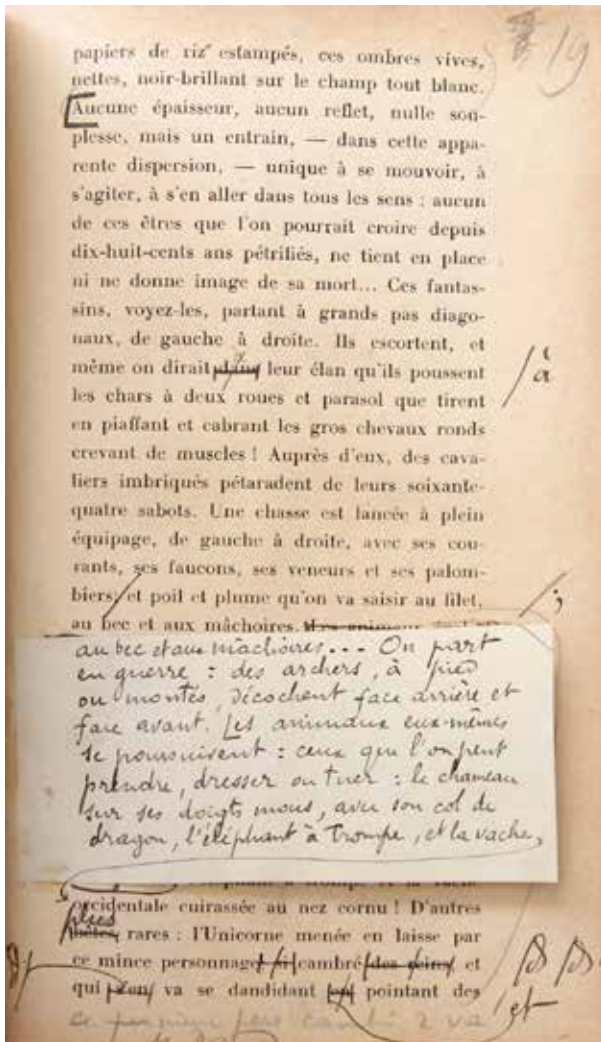 19
papiers de riz" estampés, ces ombres vives,
nettes, noir-brillant sur le champ tout blanc.
[Aucune épaisseur, aucun reflet, nulle sou-
plesse, mais un entrain, — dans cette appa-
rente dispersion, — unique à se mouvoir, à
s'agiter, à s'en aller dans tous les sens : aucun
de ces êtres que l'on pourrait croire depuis
dix-huit-cents ans pétrifiés, ne tient en place
ni ne donne image de sa mort... Ces fantas-
sins, voyez-les, partant à grands pas diago-
naux, de gauche à droite. Ils escortent, et
même on dirait dans leur élan qu'ils poussent
/à
les chars à deux roues et parasol que tirent
en piaffant et cabrant les gros chevaux ronds
crevant de muscles ! Auprès d'eux, des cava-
liers imbriqués pétaradent de leurs soixante-
quatre sabots. Une chasse est lancée à plein
équipage, de gauche à droite, avec ses cou-
rants, ses faucons, ses veneurs et ses palom-
biers, et poil et plume qu'on va saisir au filet,
/;
au bec et aux mâchoires.
au bec et aux mâchoires... On part
en guerre : des archers, à pied
ou montés, décochent face arrière et
face avant. Les animaux eux-mêmes
se poursuivent : ceux que l'on peut
prendre, dresser ou tuer : le chameau
sur ses doigts mous, avec son col de
dragon, l'éléphant à trompe, et la vache,
occidentale cuirassée au nez cornu ! D'autres
plus
bêtes, rares : l'Unicorne menée en laisse par
ce mince personnage si cambré des reins et
qui s'en va se dandidant en pointant des
et